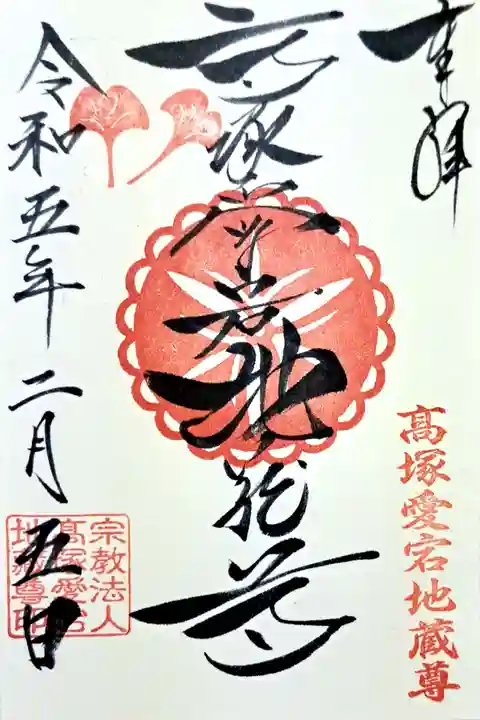 奉拝
高塚愛宕地蔵尊
高塚愛宕地蔵尊
令和五年二月五日
宗教法人
高塚愛宕
地蔵尊印